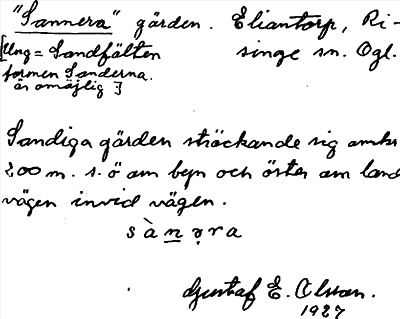 "Sannera" gärden. Eliantorp, Ri-
[Ung = Sandfälten singe sn. Ögl.
formen Sanderna.
är omöjlig]
Sandiga gärden sträckande sig omkr
200 m. s.ö om byn och öster om land
vägen invid vägen.
sànəra
Gustaf E. Olsson.
1927